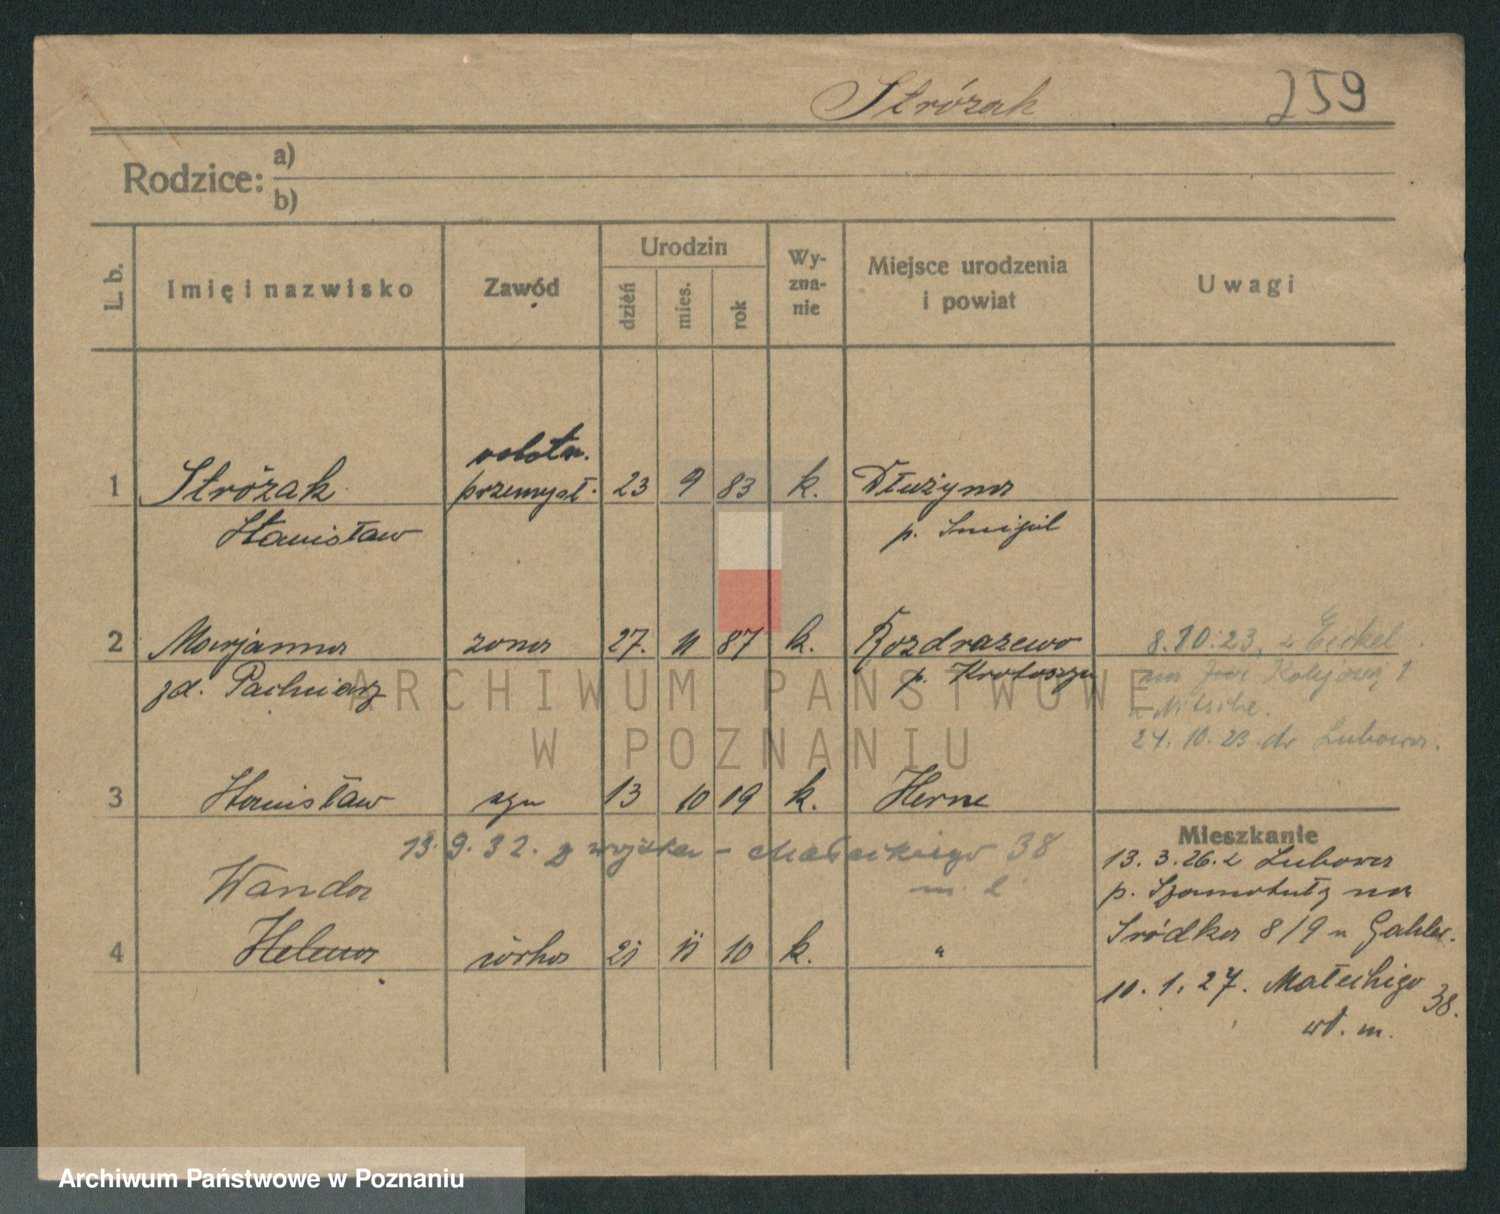 Stróżak 259
Rodzice: a)
b)
L. b. Imię i nazwisko Zawód Urodzin dzień mies. rok Wy-zna-nie Miejsce urodzenia i powiat Uwagi
robotn.
1 Stróżak przemysł. 23 9 83 k. Dłużyna
Stanisław p. Smigiel
2 Marjanna żona 27. 11 87 k. Rozdrażewo 8.10.23. z Eickel
zd. p. Krotoszyn na Kolejową 1
24.10.23 do Lubowa.
3 Stanisław syn 13 10 19 k. Herne
13.9.32. z wojska - Małeckiego 38
Mieszkanie
13.3.26. z Lubowa
Wanda p. Szamotuły na
Śródka 8/9 u
4 Helena córka 21 11 10 k. "
10.1.27. Małeckiego 38.
wł. m.
ARCHIWUM PAŃSTWOWE
W POZNANIU
Archiwum Państwowe w Poznaniu